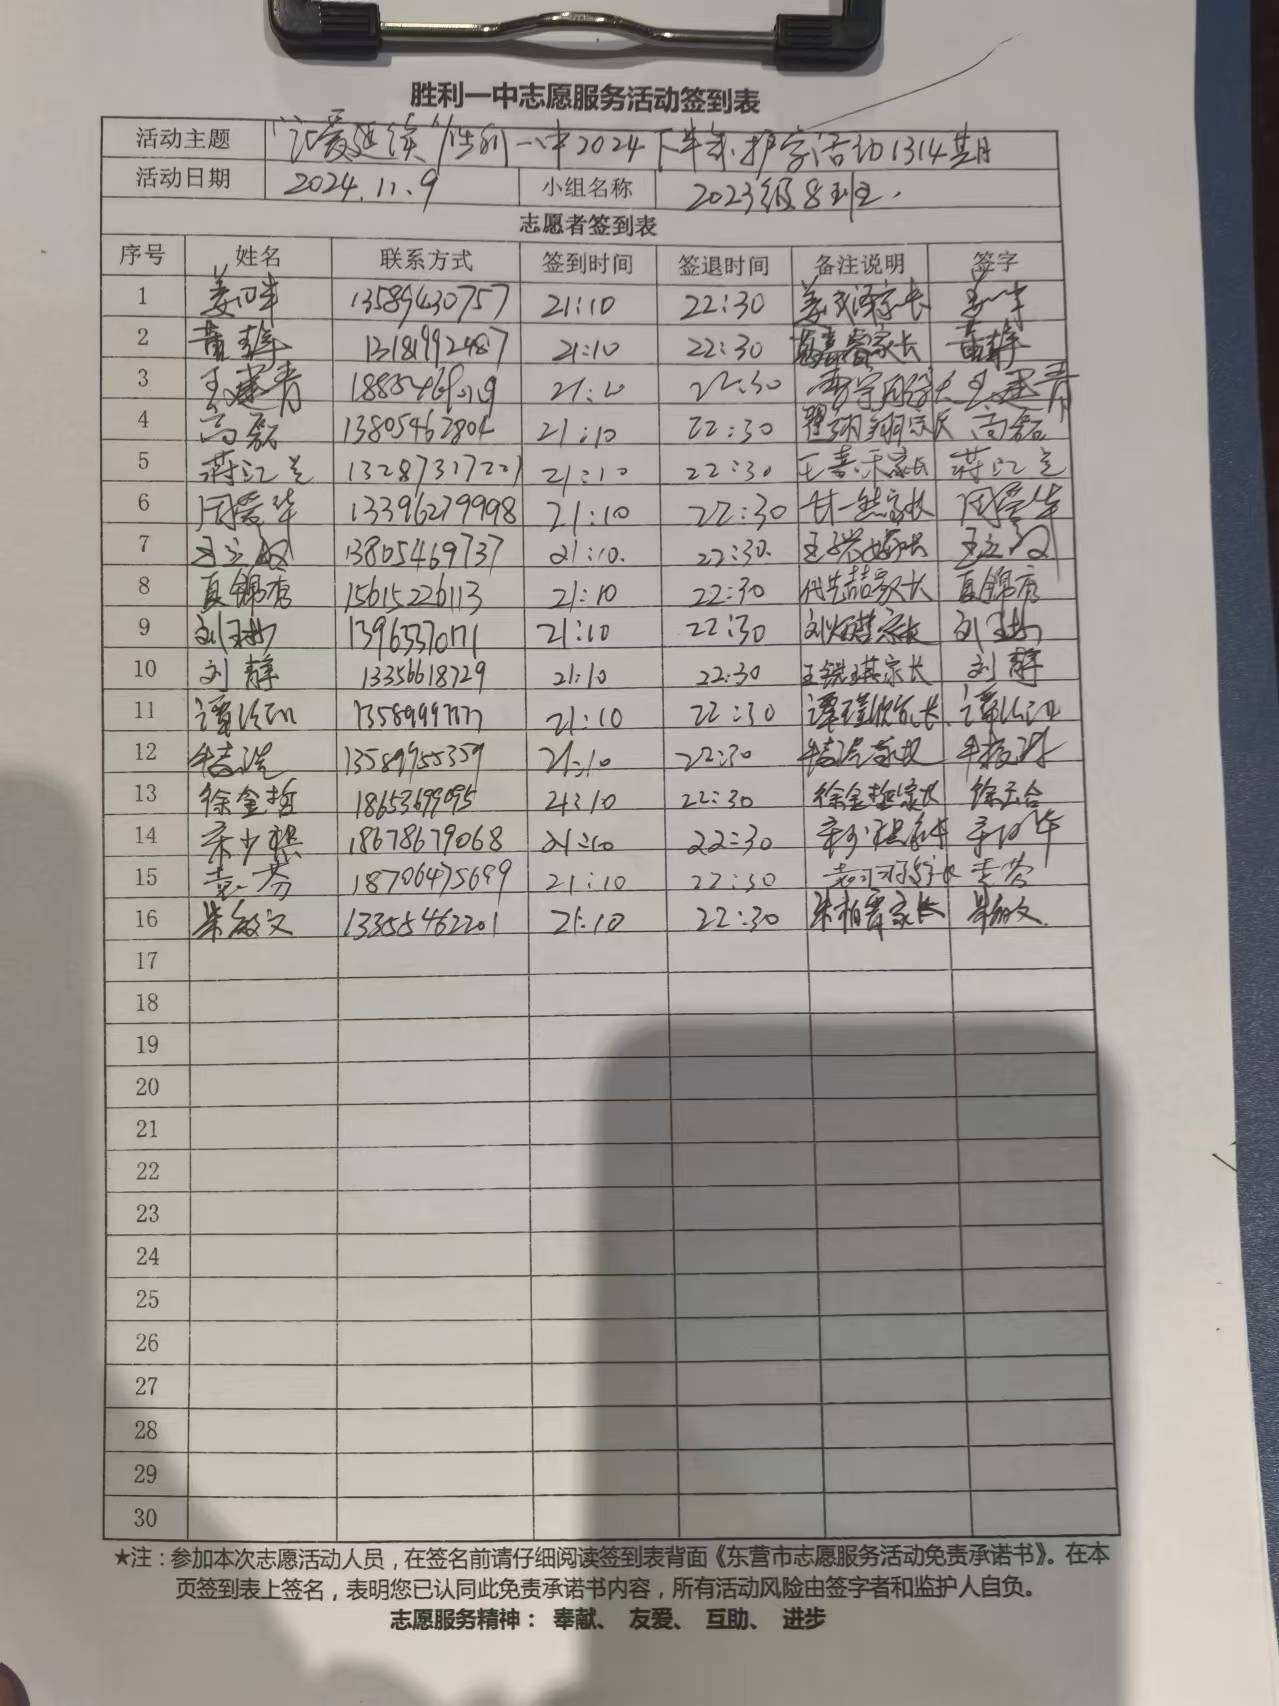 胜利一中志愿服务活动签到表
活动主题 "让爱延续"胜利一中2024下半年护学活动1314期
活动日期 2024.11.9 小组名称 2023级8班.
志愿者签到表
序号 姓名 联系方式 签到时间 签退时间 备注说明 签字
1 13589430757 21:10 22:30 家长
2 董静 13181992487 21:10 22:30 家长 董静
3 王建青 22:30 王建青
4 高磊 21:10 22:30 翟翔翔家长 高磊
5 蒋江兰 21:10 22:30 家长 蒋江兰
6 周爱华 13396279998 21:10 22:30 甘一然家长 周爱华
7 13805469737 21:10. 22:30. 家长
8 夏锦秀 15615226113 21:10 22:30 代先喆家长 夏锦秀
9 13965370171 21:10 22:30 家长
10 刘静 13356618729 21:10 22:30 王锐琪家长 刘静
11 21:10 22:30 谭瑾欣家长
12 13589955359 21:10 22:30 家长
13 徐金哲 18653699095 21:10 22:30 徐金哲家长
14 18678679068 21:10 22:30
15 袁芬 18706475699 21:10 22:30 家长 袁芬
16 朱敏文 13355462201 21:10 22:30 朱柏霖家长 朱敏文.
17
18
19
20
21
22
23
24
25
26
27
28
29
30
★注：参加本次志愿活动人员，在签名前请仔细阅读签到表背面《东营市志愿服务活动免责承诺书》。在本
页签到表上签名，表明您已认同此免责承诺书内容，所有活动风险由签字者和监护人自负。
志愿服务精神： 奉献、 友爱、 互助、 进步